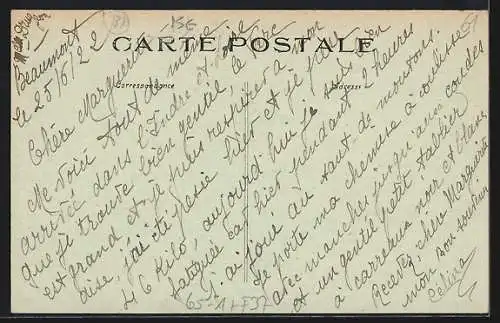 CARTE POSTALE
Correspondance
Adresse
Beaumont
le 25/6/22
Chère Marguerite
Me voici tout de même
arrivée dans l'Indre et
que je trouve bien gentil, le parc
est grand et je puis respirer à mon
aise, j'ai été pesée hier et je pèse
46 Kilo, aujourd'hui je suis bien
fatiguée car hier pendant 2 heures
j'ai joué au saut de moutons.
Je porte ma chemise à coulisse
avec manches jusqu'aux coudes
et un gentil petit tablier
à carreaux noir et blanc,
Recevez, chère Marguerite
mon bon souvenir
Céline
65-A